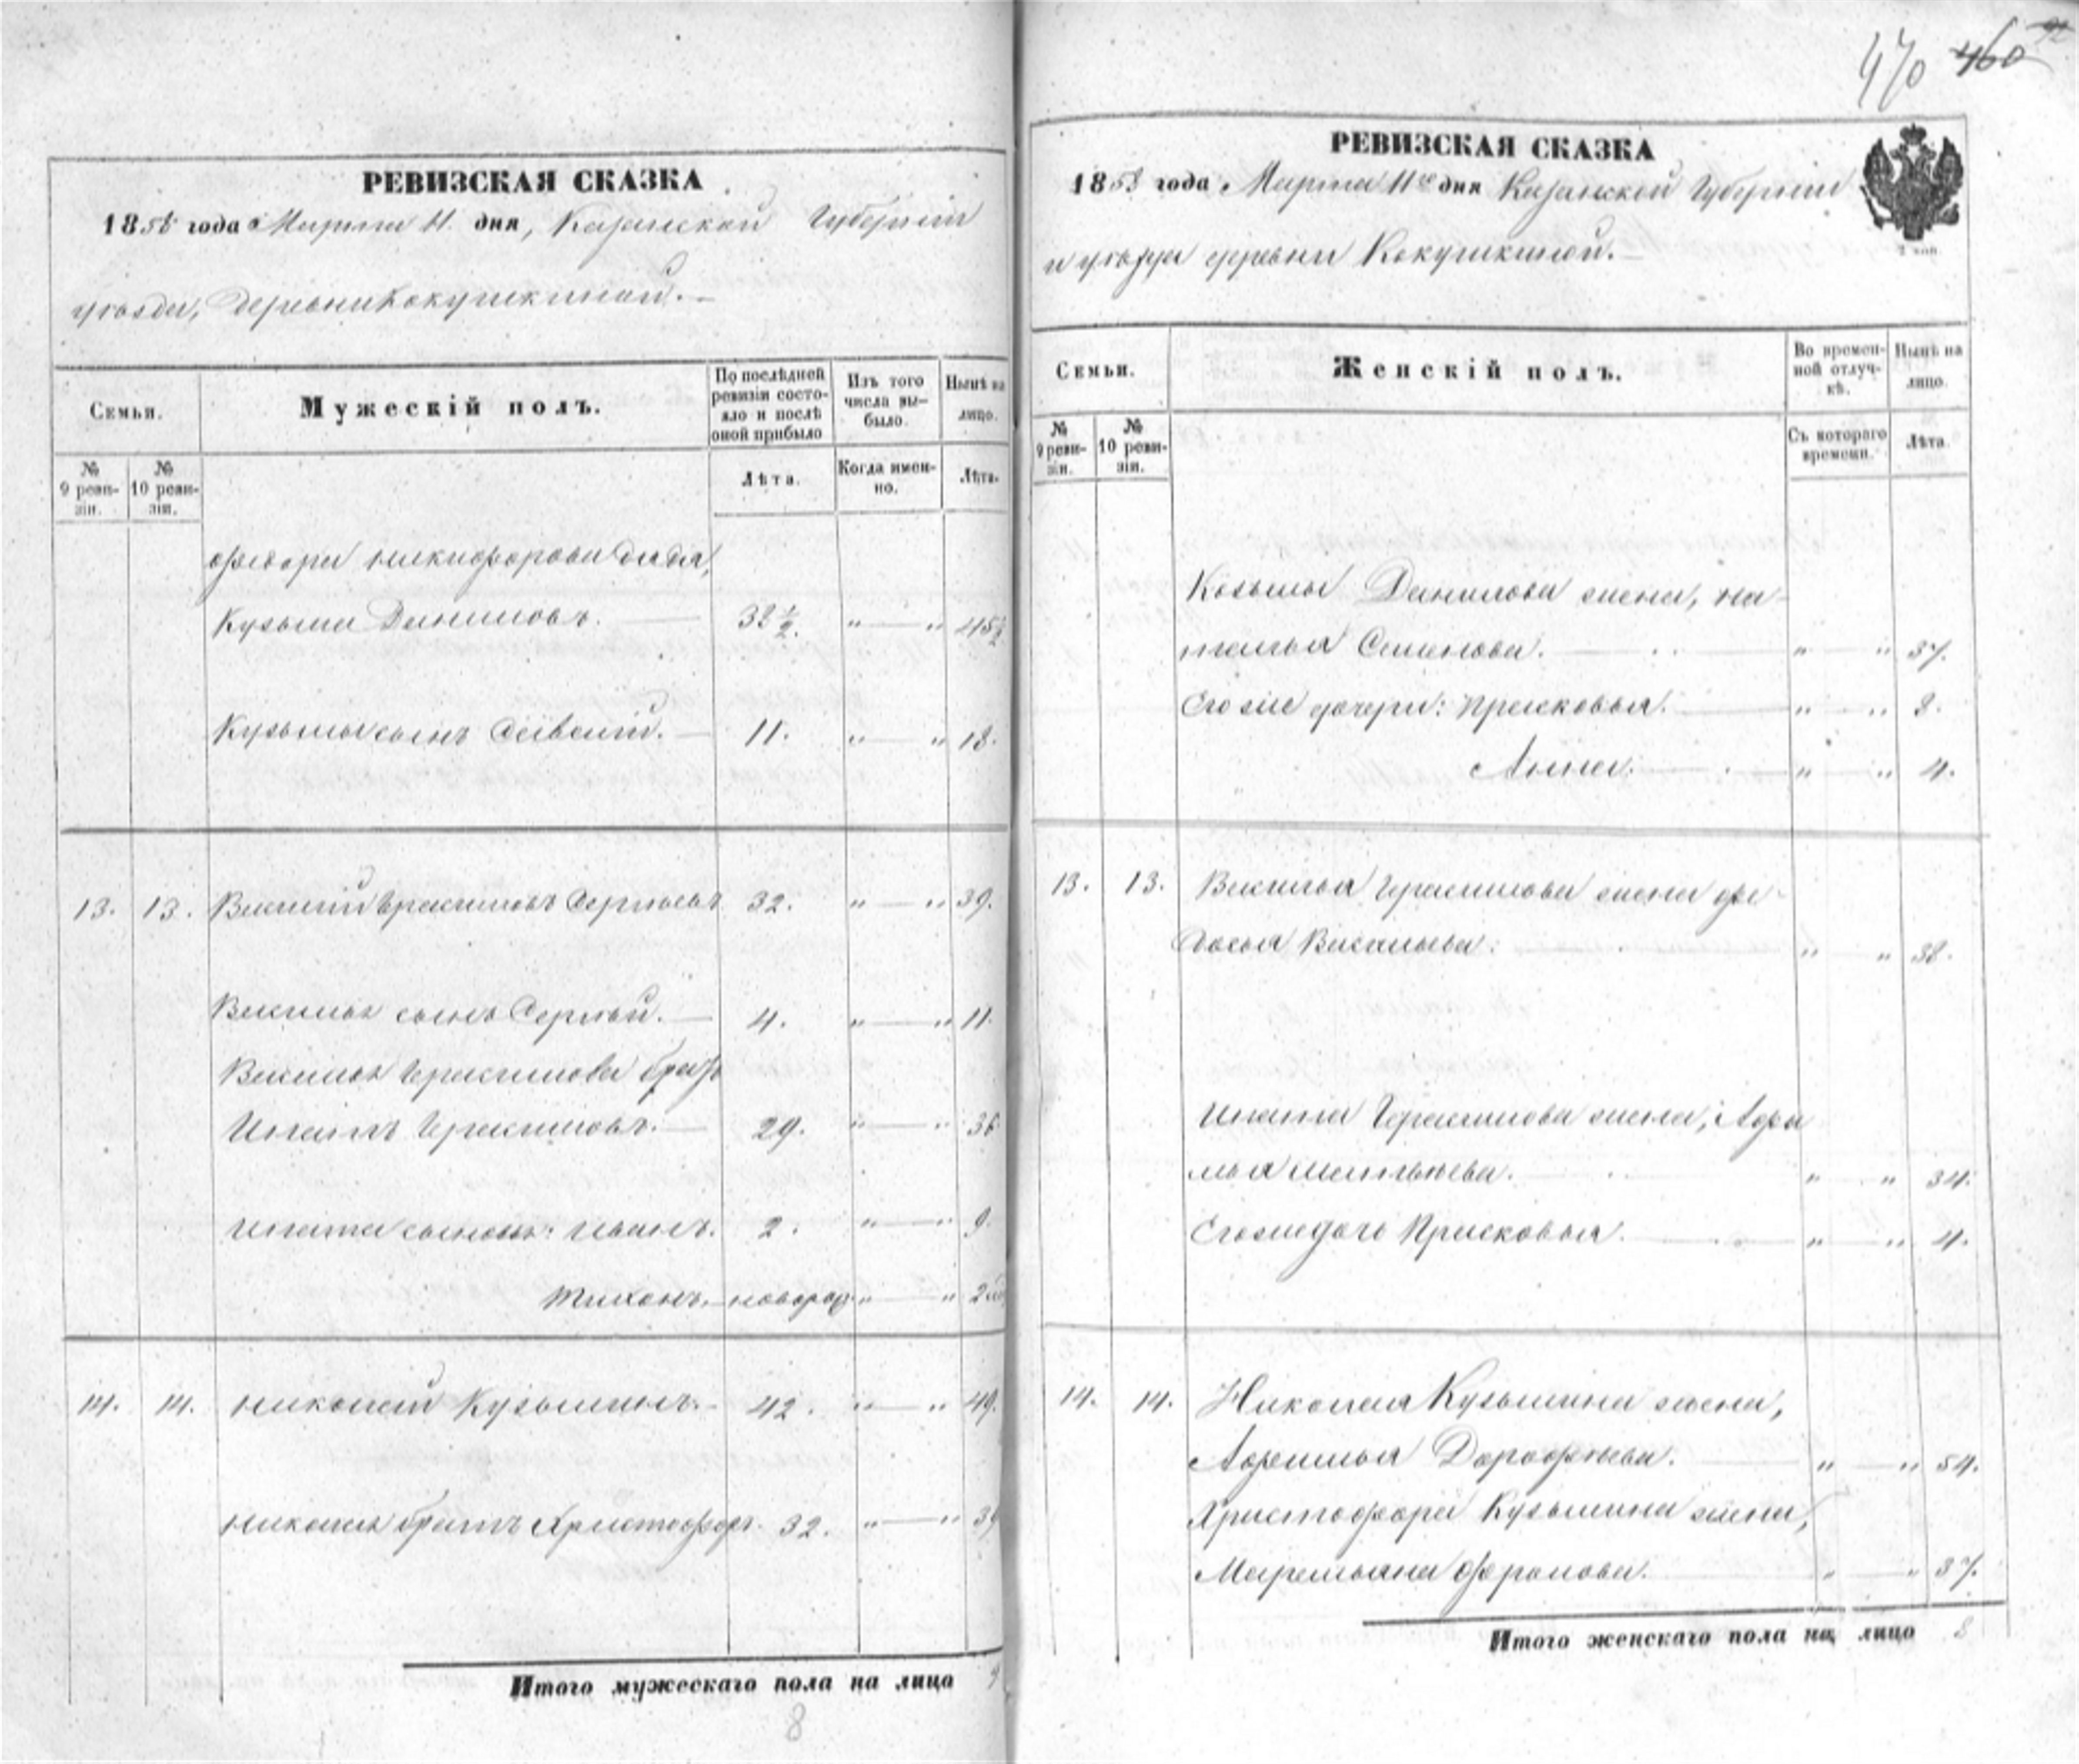 РЕВИЗСКАЯ СКАЗКА
1858 года Марта 11 дня, Казанской Губерніи
уѣзда, Деревни Кокушкиной.
Семьи.
Мужескій полъ.
По послѣдней ревизіи состояло и послѣ оной прибыло
Изъ того числа выбыло.
Нынѣ на лицо.
№ 9 ревизіи.
№ 10 ревизіи.
Лѣта.
Когда именно.
Лѣта.
Федора Никифорова дядя,
Кузьма Даниловъ. 38½. " — " 45½
Кузьмы сынъ Савелій. 11. " — " 18.
13. 13. Василій Герасимовъ Сергѣевъ 32. " — " 39.
Василья сынъ Сергѣй. 4. " — " 11.
Василья Герасимова братъ
Ипатъ Герасимовъ. 29. " — " 36
Ипата сыновья: Иванъ. 2. " — " 9.
Тихонъ. новорож " — " 2
14. 14. Николай Кузьминъ. 42. " — " 49.
Николая братъ Христофоръ. 32. " — " 39
Итого мужескаго пола на лицо 9
8
470 460
РЕВИЗСКАЯ СКАЗКА
1858 года Марта 11го дня Казанской Губерніи
и уѣзда деревни Кокушкиной.
Семьи.
Женскій полъ.
Во временной отлучкѣ.
Нынѣ на лицо.
№ 9 ревизіи.
№ 10 ревизіи.
Съ котораго времени.
Лѣта.
Козьмы Данилова жена, На-
талья Семенова. " — " 37.
Его же дочери: Прасковья. " — " 8.
Анна. " — " 4.
13. 13. Василья Герасимова жена Фе-
досья Васильева. " — " 38.
Ипата Герасимова жена, Афи
мья Матвѣева. " — " 34.
Его же дочь Прасковья. " — " 4.
14. 14. Николая Кузьмина жена,
Афимья Дорофѣева. " — " 54.
Христофора Кузьмина жена,
Маремьяна Фролова. " — " 37.
Итого женскаго пола на лицо 8